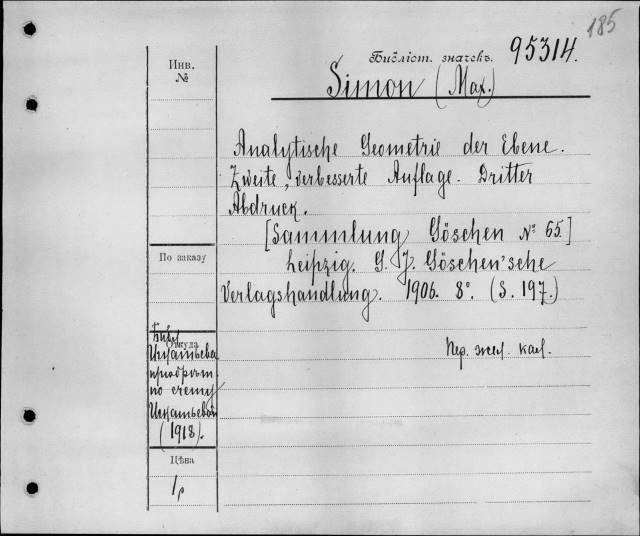 185
Библіот. значекъ. 95314.
Инв.
№
Simon (Max.)
Analytische Geometrie der Ebene.
Zweite, verbesserte Auflage. Dritter
Abdruck.
[Sammlung Göschen № 65.]
По заказу
Leipzig. G. J. Göschen'sche
Verlagshandlung. 1906. 8°. (S. 197.)
Откуда
Библ.
Игнатьева
приобрѣт.
по счету
Игнатьевой
(1918).
Пер. жел. кал.
Цѣна
1р